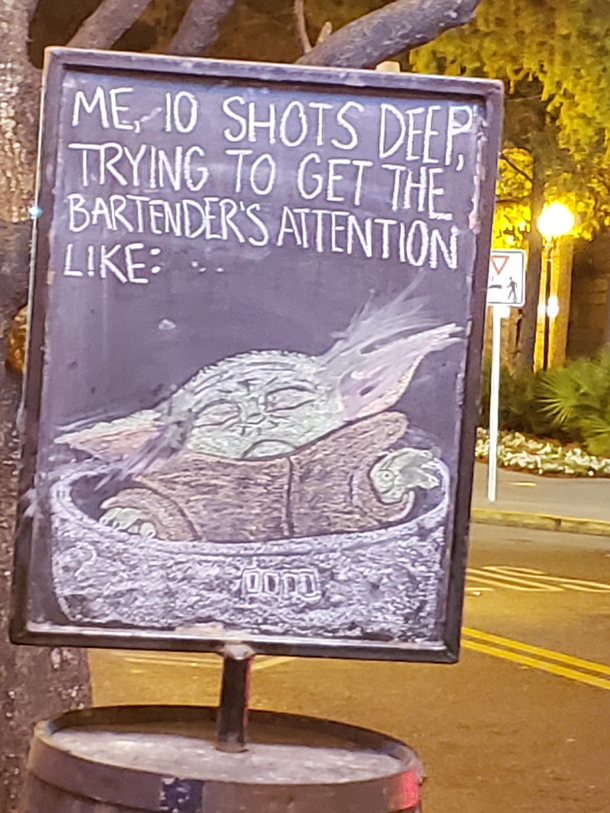 ME, 10 SHOTS DEEP,
TRYING TO GET THE
BARTENDER'S ATTENTION
LIKE: ...